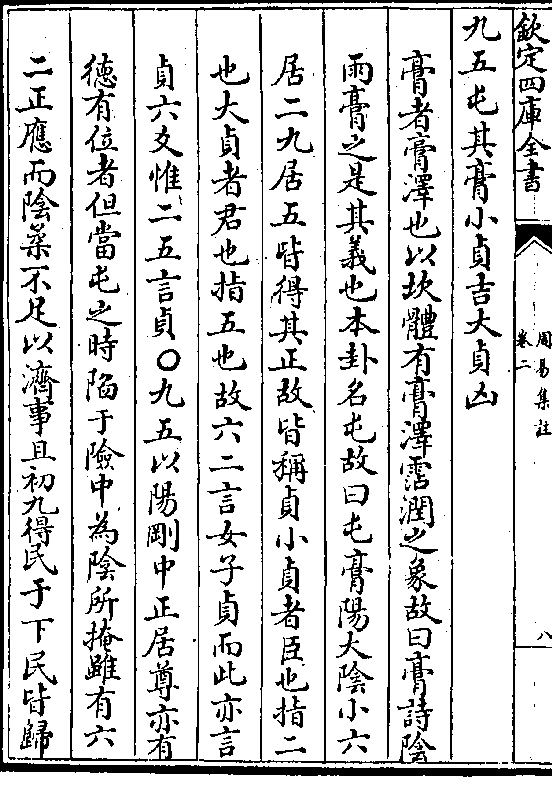 欽定四庫全書
周易集註
卷二
八
九五屯其膏小貞吉大貞凶
膏者膏澤也以坎體有膏澤霑潤之象故曰膏詩陰
雨膏之是其義也本卦名屯故曰屯膏陽大陰小六
居二九居五皆得其正故皆稱貞小貞者臣也指二
也大貞者君也指五也故六二言女子貞而此亦言
貞六爻惟二五言貞〇九五以陽剛中正居尊亦有
德有位者但當屯之時陷于險中為陰所掩雖有六
二正應而陰柔不足以濟事且初九得民于下民皆歸